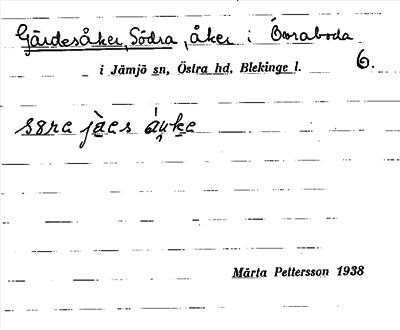 Gärdesåker, Södra, åker i Övraboda
i Jämjö sn, Östra hd, Blekinge l. 6.
Märta Pettersson 1938